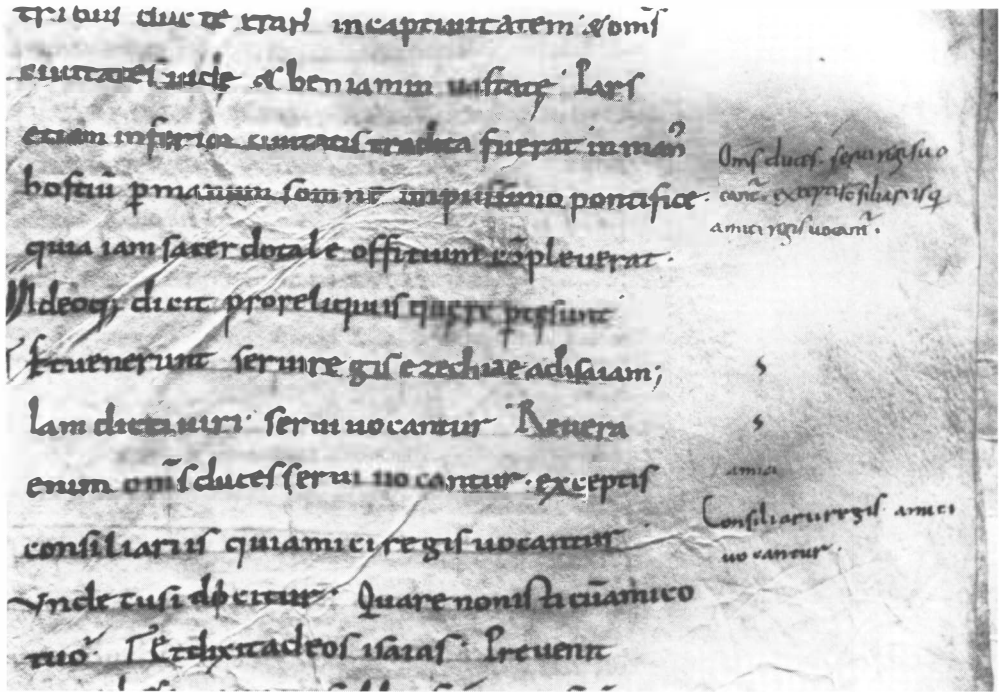 tribus ducte erant incaptiuitatem· & om̅s
ciuitates iude & beniamin uastate· Pars
etiam inferior ciuitatis tradita fuerat in man̅
hostiu̅ p manum somni̅ impiissimo pontifice·
quia iam sacerdotale officium co̅pleuerat·
Ideoq; dicit proreliquiis que
Et uenerunt serui regis ezechiae adisaiam;
Iam dicti uiri· serui uocantur Reuera
enim om̅s duces serui uocantur· exceptis
consiliariis quiamici regis uocantur
Vnde cusi dicitur· Quare nonisti cu̅amico
tuo· Et dixitadeos isaias· Peruenit
Om̅s duces· serui regis uo
cant̅· exceptis co̅siliariis q
amici regis uocant̅·
amici
Consiliarii regis· amici
uocantur·